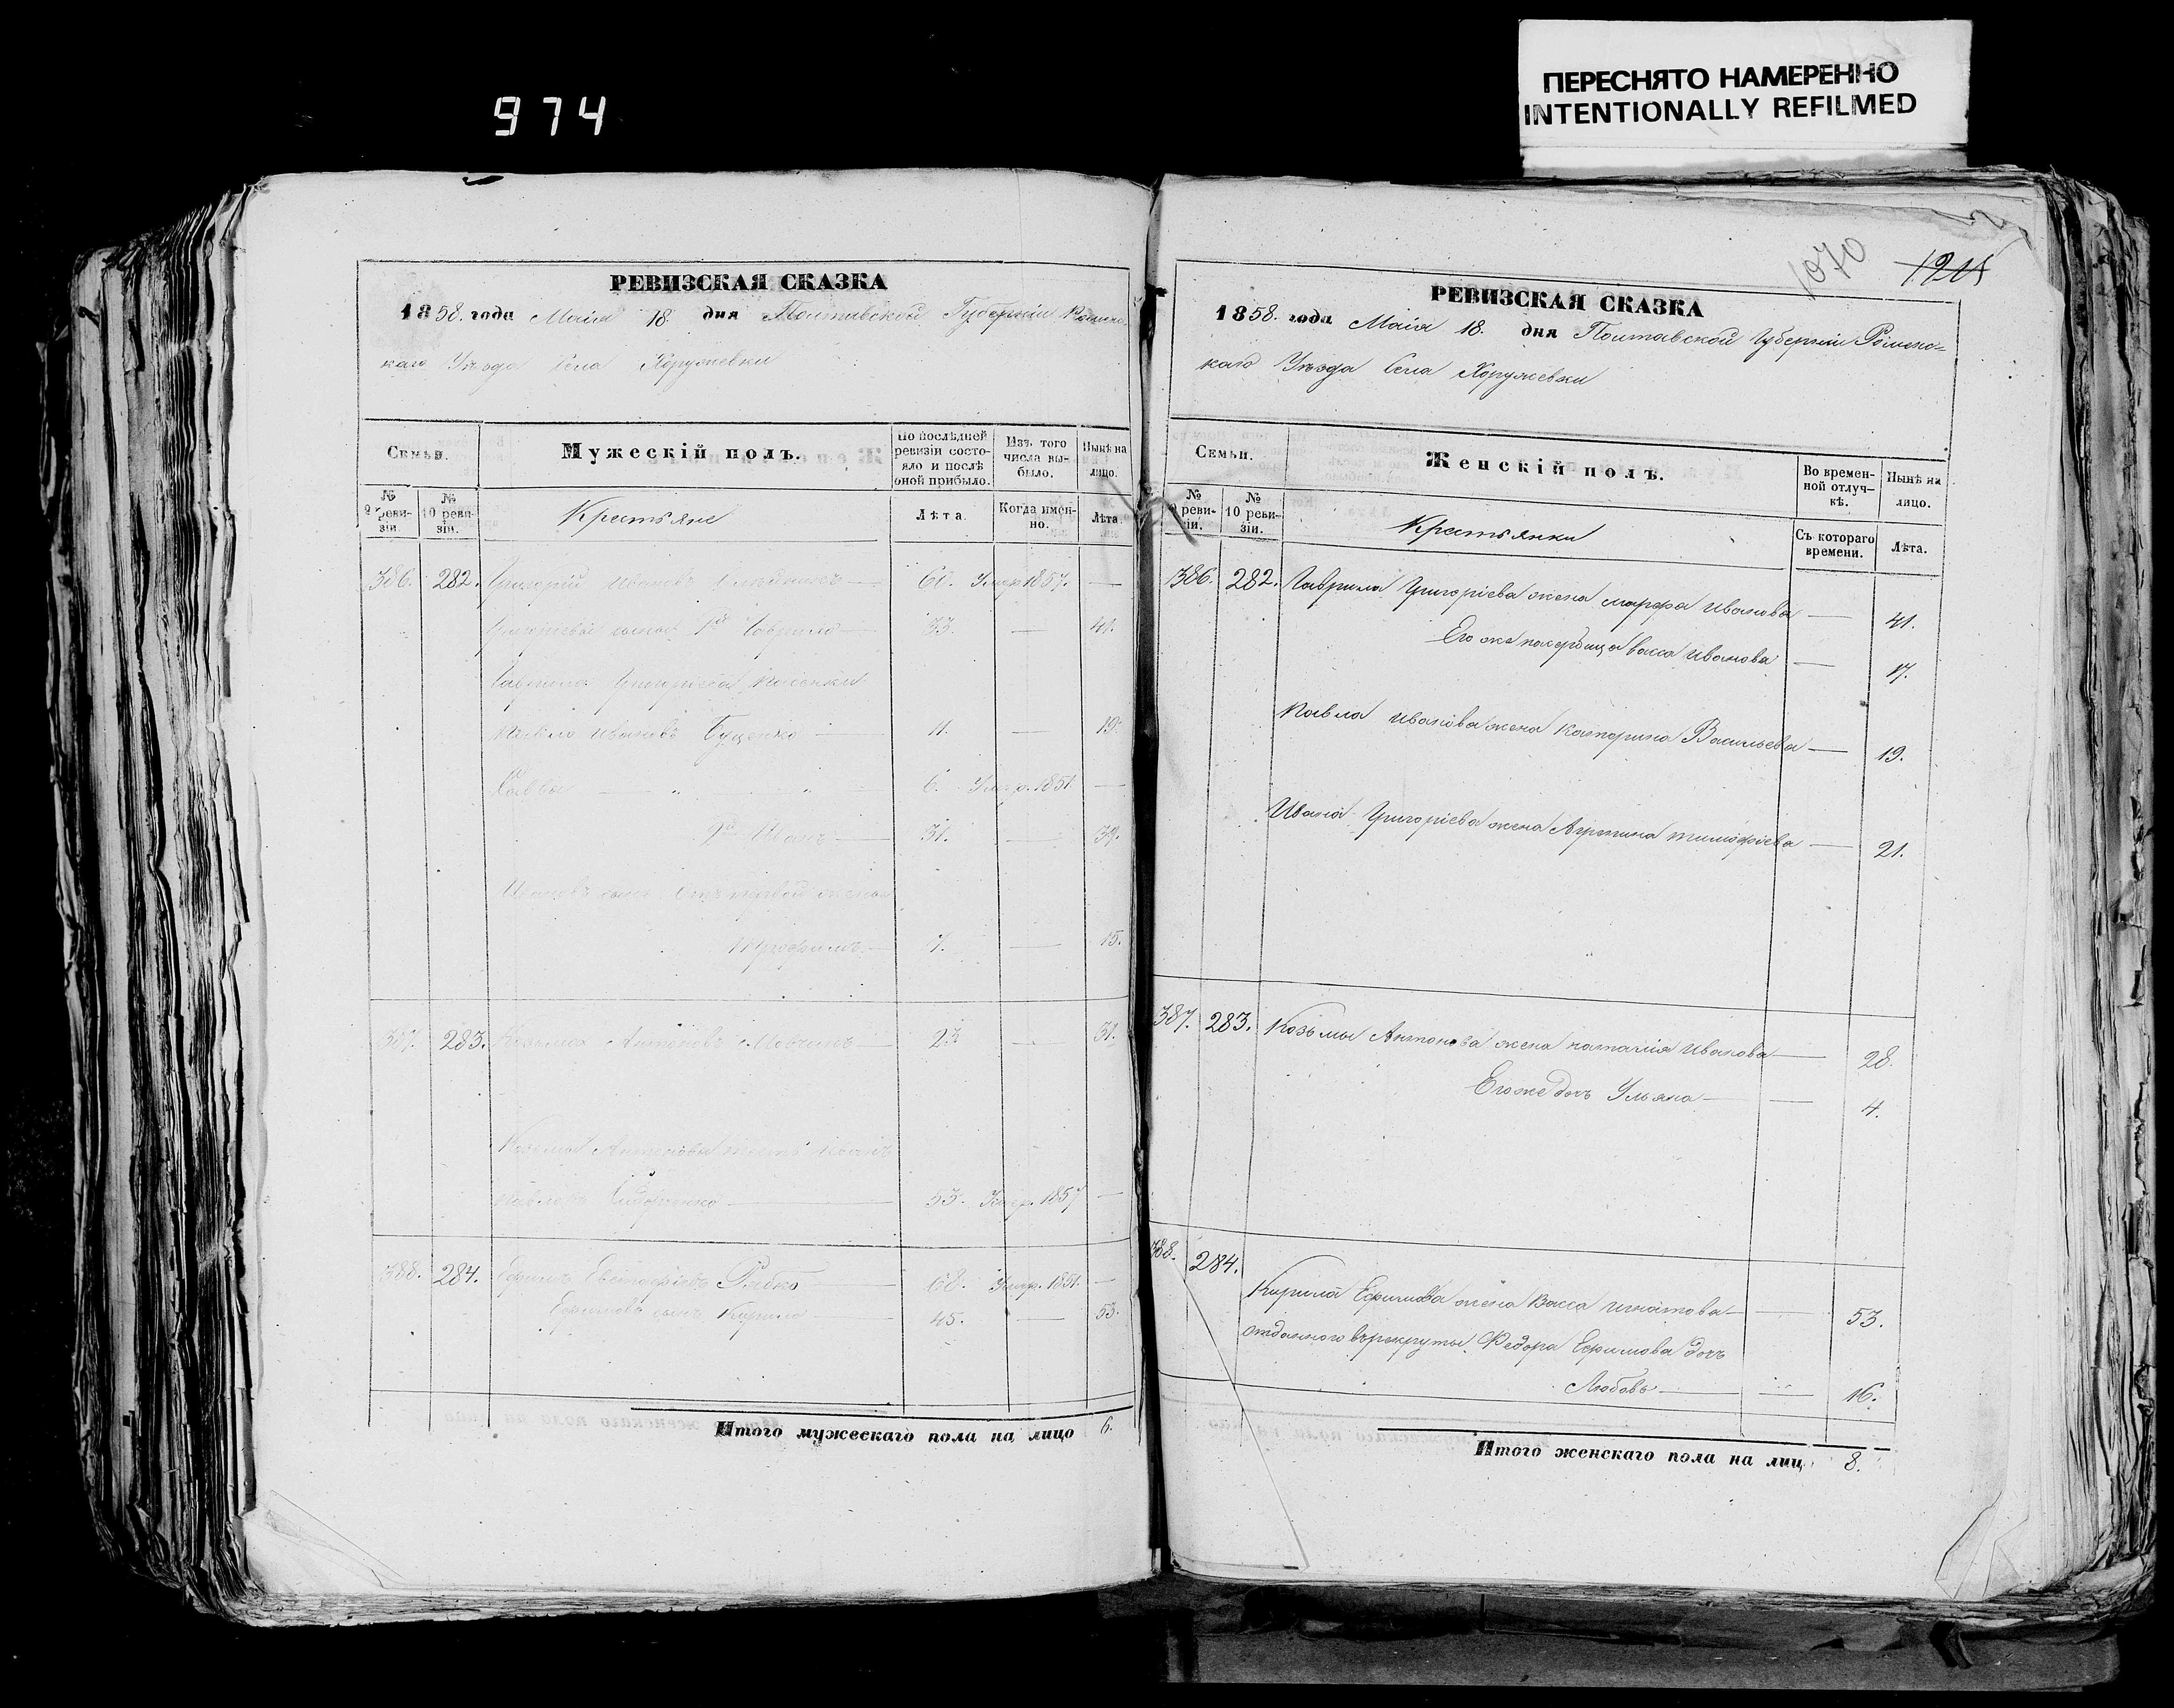 974
ПЕРЕСНЯТО НАМЕРЕННО
INTENTIONALLY REFILMED
РЕВИЗСКАЯ СКАЗКА
1858. года Маія 18. дня Полтавской Губерніи Роменс-
каго Уѣзда Села Хоружевки
Семьи.
Мужескій полъ.
По послѣдней ревизіи состояло и послѣ оной прибыло.
Изъ того числа выбыло.
Нынѣ на лицо.
№ 9 ревизіи.
№ 10 ревизіи.
Крестьяне
Лѣта.
Когда именно.
Лѣта.
386. 282. Григорій Ивановъ — 60. Умер 1857. —
Григорьевы сыновья 1й Гаврило — 33. — 41.
Гаврила Григорьева пасынки
Павло Ивановъ Буценко — 11. — 19.
Савва — „ — „ 6. Умер. 1851 —
2й Иванъ — 31. — 39.
Ивановъ сынъ отъ первой жены
Трофимъ — 7. — 15.
387. 283. Козьма Антоновъ Мовчанъ — 23 — 31.
Козьмы Антонова тесть Иванъ
Павловъ Сидоренко — 53. Умер. 1857 —
388. 284. Ефимъ Рябко — 68. Умер. 1851. —
Ефимовъ сынъ Кирило — 45. — 53.
Итого мужескаго пола на лицо 6.
1070
РЕВИЗСКАЯ СКАЗКА
1858. года Маія 18. дня Полтавской Губерніи Роменс=
каго Уѣзда Села Хоружевки
Семьи.
Женскій полъ.
Во временной отлучкѣ.
Нынѣ на лицо.
№ 9 ревизіи.
№ 10 ревизіи.
Крестьянки
Съ котораго времени.
Лѣта.
386. 282. Гаврила Григоріева жена Марфа Иванова — 41.
Его же пасербица Васса Иванова — 17.
Павла Иванова жена Катерина Васильева — 19.
Ивана Григоріева жена Агрипина Тимофіева — 21.
387. 283. Козьмы Антонова жена Наталія Иванова — 28.
Его же дочь Ульяна — — 4.
388. 284.
Кирила Ефимова жена Васса Игнатова — — 53.
отданного въ рекруты Федора Ефимова дочь
Любовь — — 16.
Итого женскаго пола на лиц 8.